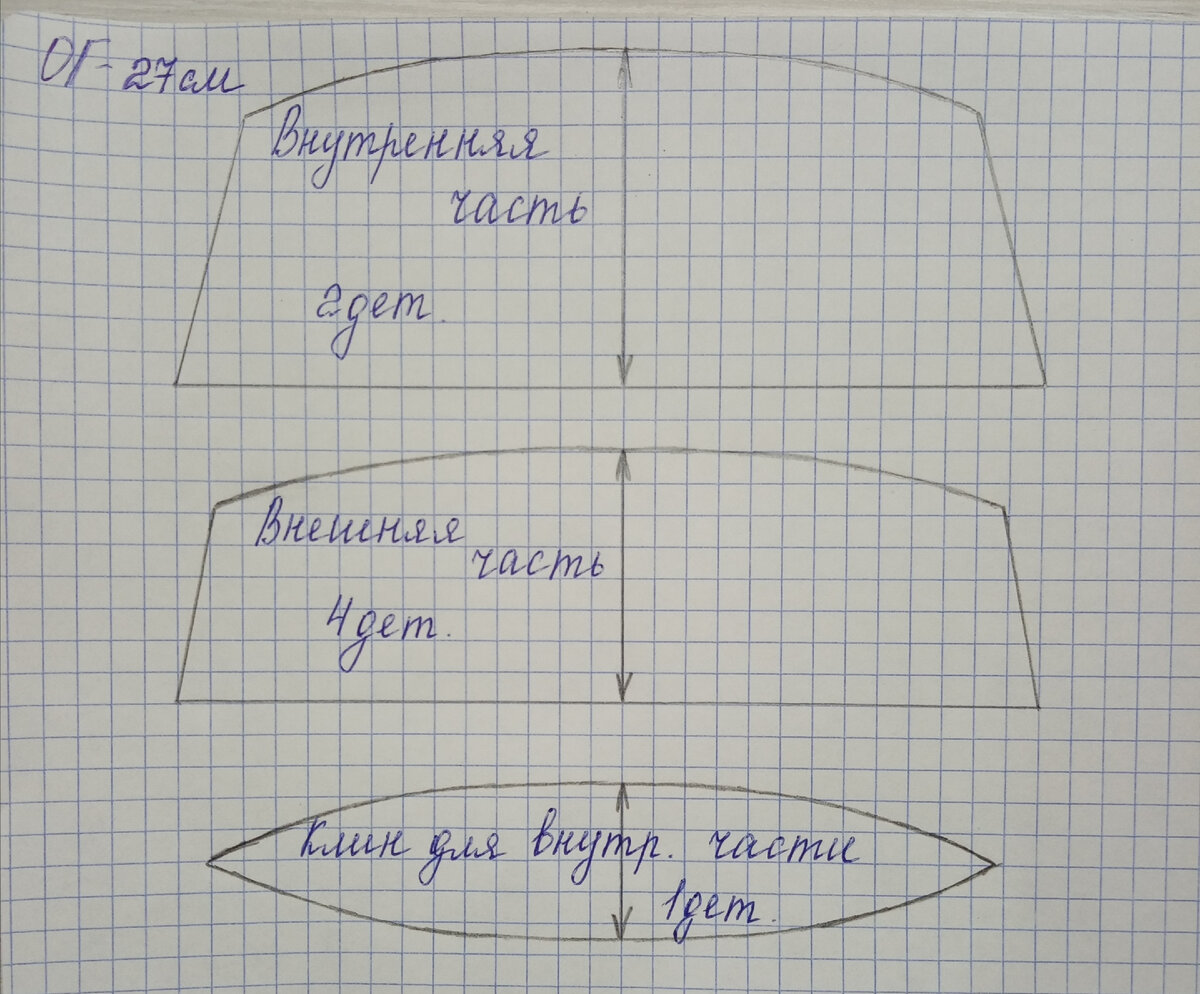 ОГ- 27см
Внутренняя
часть
2дет.
Внешняя
часть
4дет.
Клин для внутр. части
1дет.